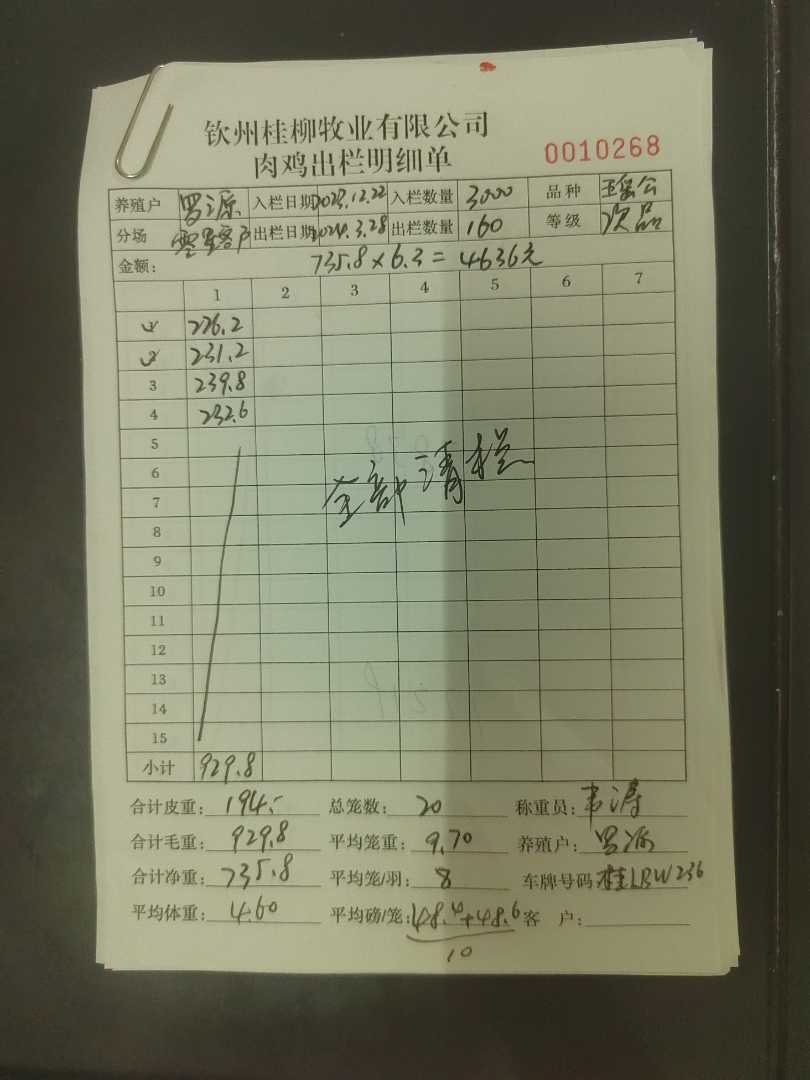 钦州桂柳牧业有限公司
肉鸡出栏明细单 0010268
养殖户 罗源 入栏日期 2023.12.22 入栏数量 3000 品种 瑶公
分场 零星客户 出栏日期 2024.3.28 出栏数量 160 等级 次品
金额: 735.8×6.3=4636元
1 2 3 4 5 6 7
1 226.2
2 231.2
3 239.8
4 232.6
5
6
全部清栏
7
8
9
10
11
12
13
14
15
小计 929.8
合计皮重: 194.- 总笼数: 20 称重员: 韦涛
合计毛重: 929.8 平均笼重: 9.70 养殖户: 罗源
合计净重: 735.8 平均笼/羽: 8 车牌号码 桂LBW236
平均体重: 4.60 平均磅/笼: 48.4+48.6 客 户:
10